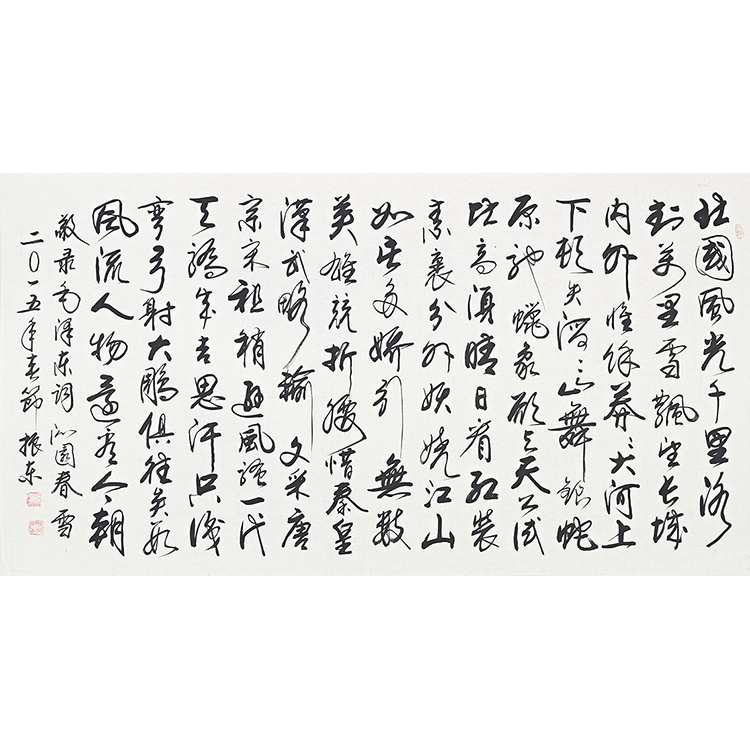 北國風光千里冰
封萬里雪飄望长城
内外惟餘莽々大河上
下頓失滔々山舞銀蛇
原馳蠟象欲与天公試
比高須晴日看紅裝
素裹分外妖嬈江山
如此多嬌引無數
英雄競折腰惜秦皇
漢武略輸文采唐
宗宋祖稍遜風騷一代
天驕成吉思汗只識
彎弓射大鵰俱往矣數
風流人物還看今朝
敬录毛澤东詞沁園春雪
二〇一五年春節振东